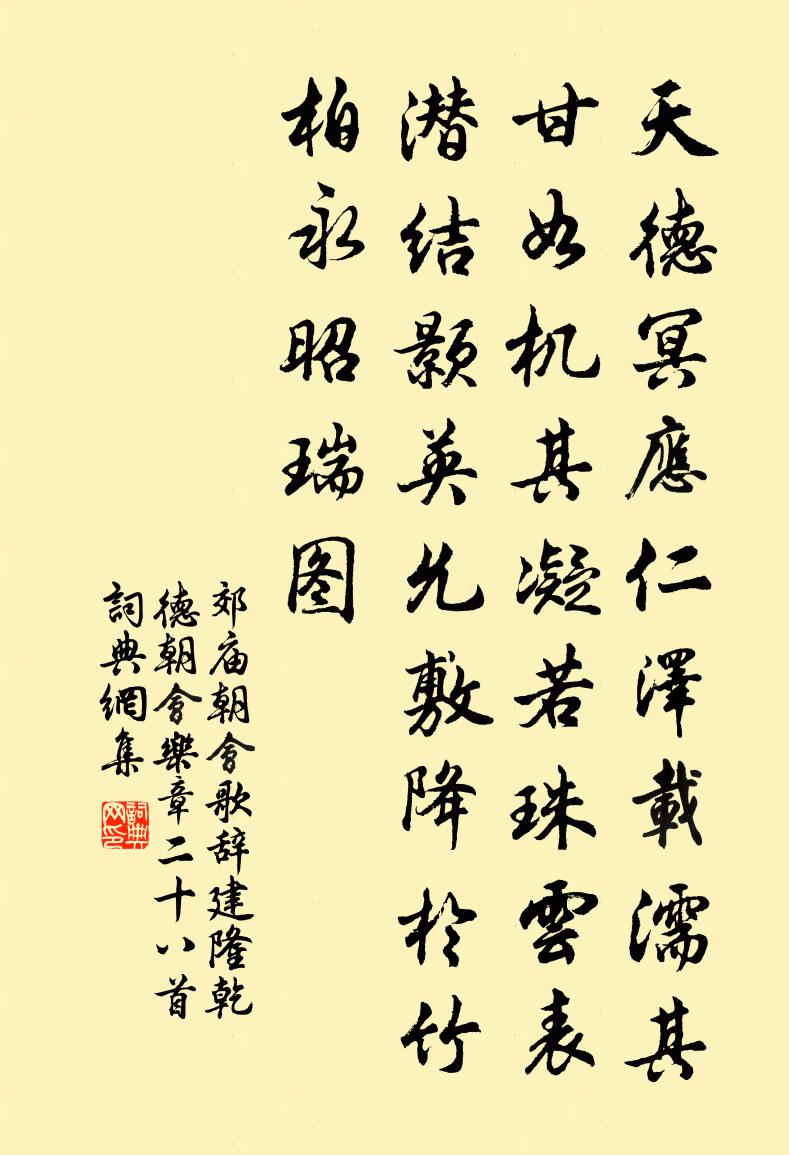 天德冥應仁澤載濡其
甘如机其凝若珠雲表
潜结颢英允敷降於竹
柏永昭瑞图
郊庙朝會歌辞建隆乾
德朝會樂章二十八首
詞典網集
詞典网印